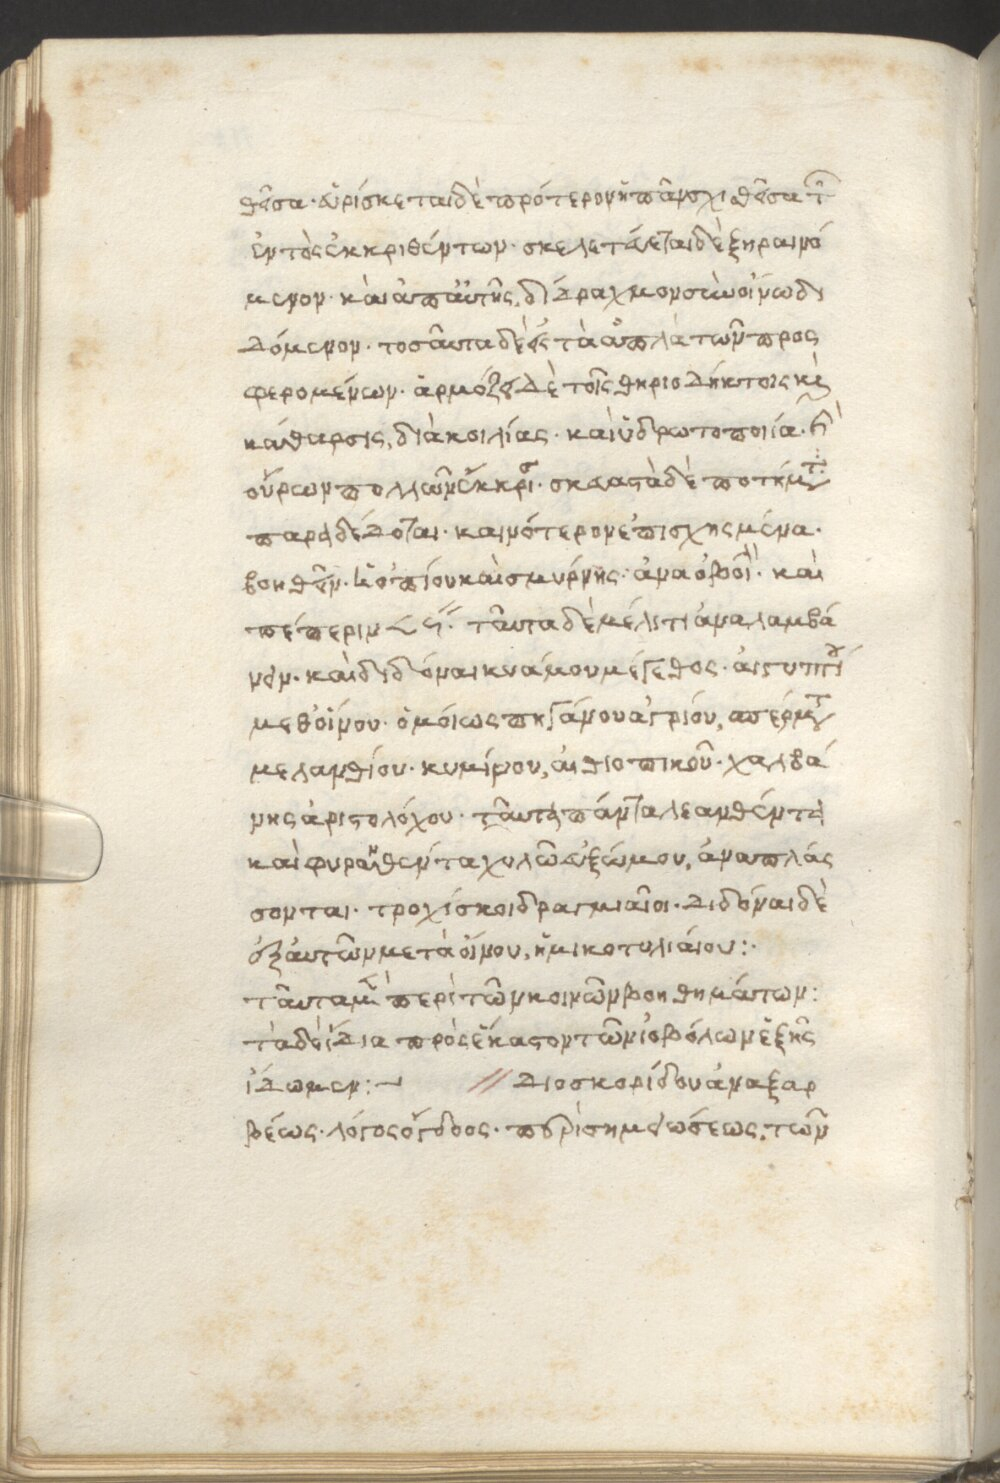 θεῖσα· εὑρίσκεται δὲ πρότερον ἢ πᾶν σχισθεῖσα τῶν
ἐντὸς ἐκκριθέντων· σκελετεύεται δὲ ξηραινό
μενον· καὶ ἀπ' αὐτῆς, δίδραχμον σὺν οἴνω δι
δόμενον· τοσαῦτα δὲ εἰς τὰ ἁπλᾶ τῶν προς
φερομένων· ἁρμόζει δὲ τοῖς θηριοδήκτοις καὶ
κάθαρσις, διὰ κοιλίας· καὶ ὑδρωτοποιία· καὶ
οὔρων πολλῶν ἔκκρισις· σκευαστὰ δὲ ποτήματα
παραδέδοται· καινότερον ἐπισχησμένα·
βοηθεῖν· ὀπίου καὶ σμύρνης· ἀνὰ ὀβολοὶ· καὶ
πέπεριν ταῦτα δὲ μέλιτι ἀναλαμβά
νειν· καὶ διδόναι κυάμου μέγεθος· αἰγυπτίου
μεθ' οἴνου· ὁμοίως πηγάνου ἀγρίου, σπέρματος
μελανθίου· κυμίνου, αἰθιοπικοῦ· χαλβά
νης ἀριστολόχου· ταῦτα πάντα λεανθέντα
καὶ φυραθέντα χυλῶ εὐζώμου, ἀναπλάς
σονται· τροχίσκοι δραγμιαῖοι· διδόναι δὲ
ἐξ αὐτῶν μετὰ οἴνου, ἡμικοτυλιαίου:·
ταῦτα μὲν περὶ τῶν κοινῶν βοηθημάτων:
τὰ δὲ ἴδια πρὸς ἕκαστον τῶν ἰοβόλων ἑξῆς
ἴδωμεν:~ // Διοσκορίδου ἀναξαρ
βέως· λόγος ὄγδοος· περὶ σημειώσεως, τῶν